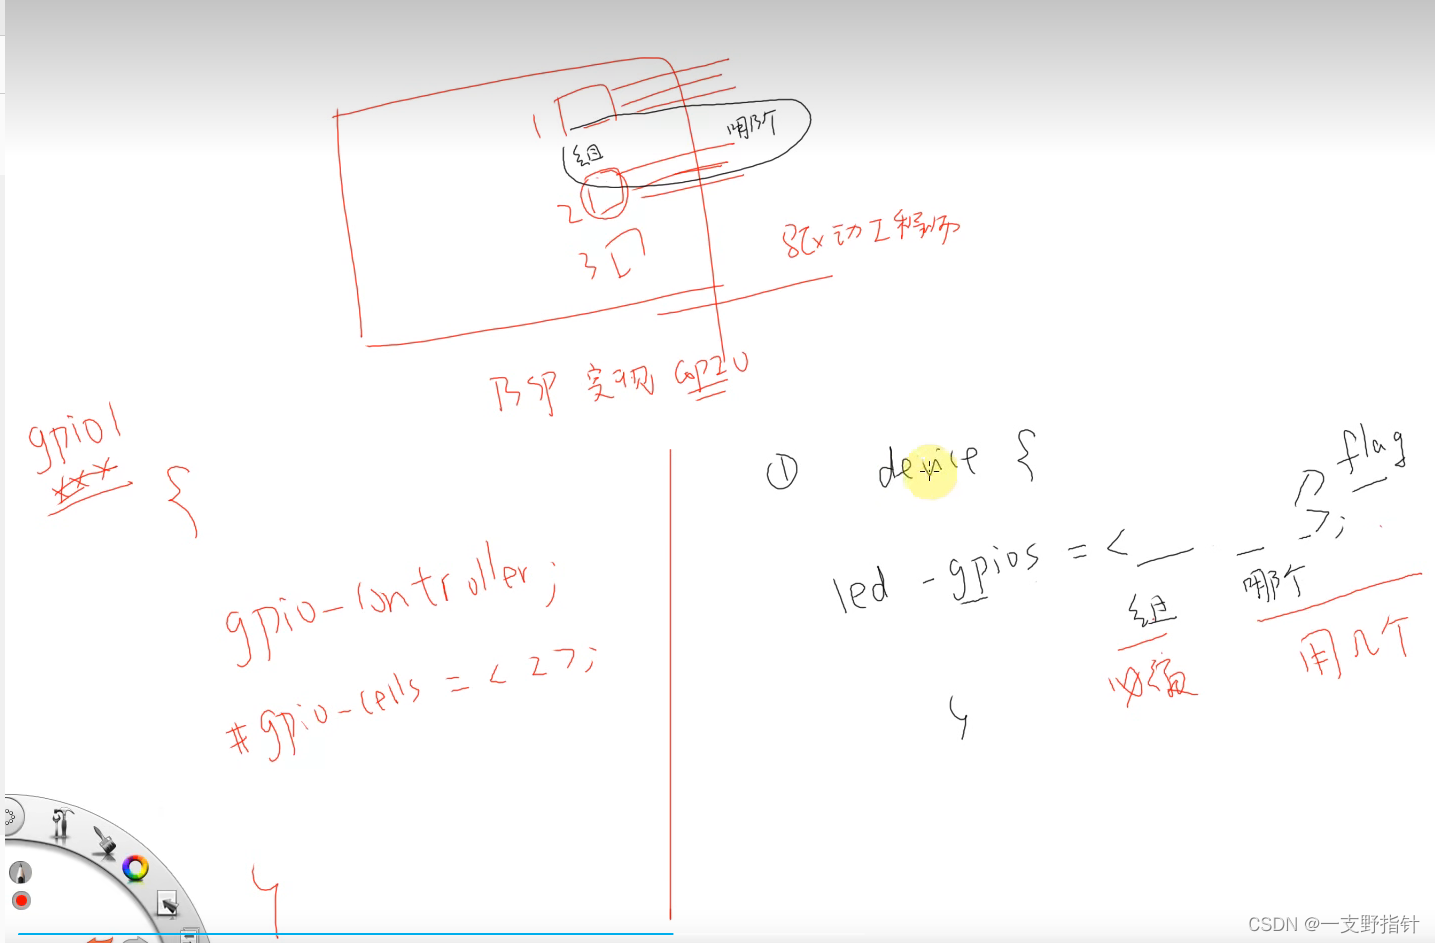 1
哪个
组
2
3
驱动工程师
BSP 实现 GPIO
gpio1
xxx {
gpio-controller;
#gpio-cells = < 2 >;
}
① device {
flag
led-gpios = < __ _ _ >;
组 哪个
必须 用几个
}
CSDN @一支野指针